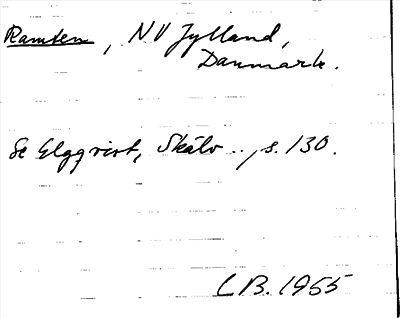 Ramten, NV Jylland,
Danmark.
Se Elgqvist, Skälv.., s. 130.
CB. 1955